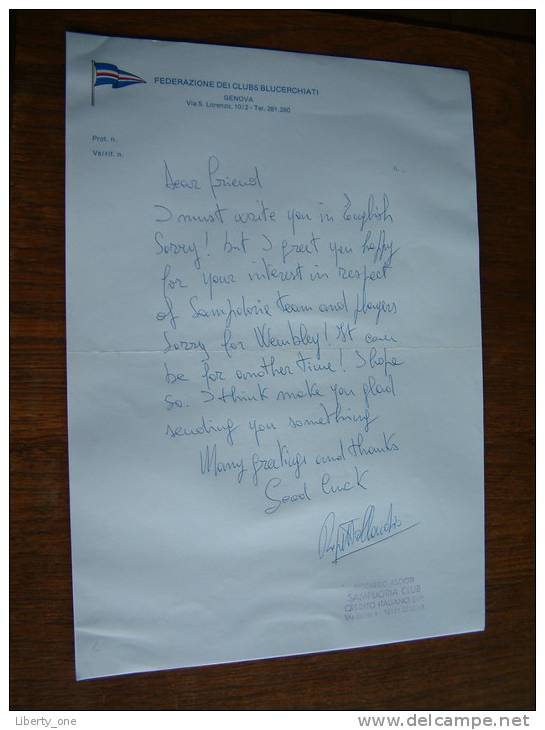 FEDERAZIONE DEI CLUBS BLUCERCHIATI
GENOVA
Via S. Lorenzo, 10/2 - Tel. 281.260
Prot. n.
Vs/rif. n.
Dear friend
I must write you in English
Sorry! but I greet you happy
for your interest in respect
of Sampdoria team and players
Sorry for Wembley! It can
be for another time! I hope
so. I think make you glad
sending you something
Many greetings and thanks
Good luck
SAMPDORIA CLUB
CREDITO ITALIANO
Liberty_one
www.delcampe.net